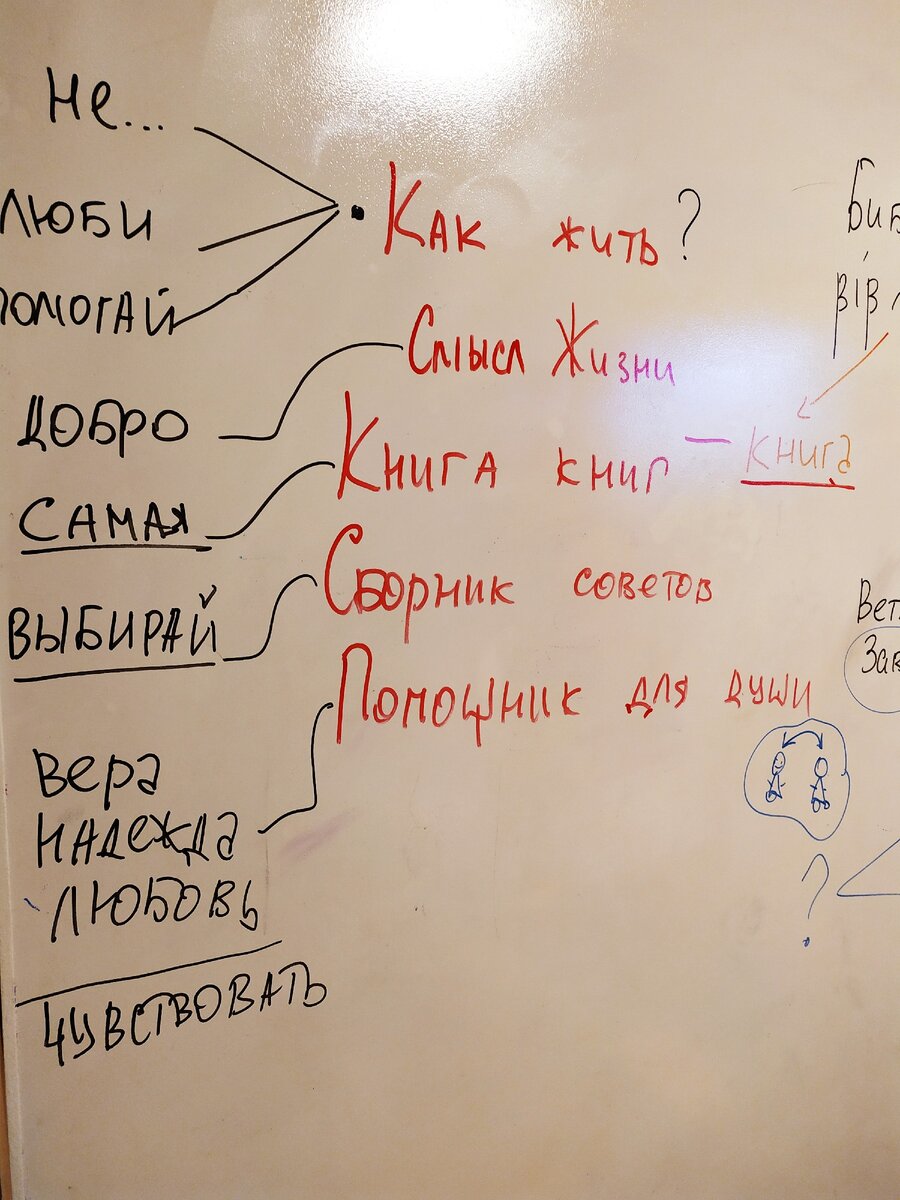 Не...
ЛЮБИ
ПОМОГАЙ
ДОБРО
САМАЯ
ВЫБИРАЙ
Вера
НАДЕЖДА
ЛЮБОВЬ
ЧУВСТВОВАТЬ
• КАК жить?
Смысл Жизни
КНИГА КНИГ — книга
Сборник советов
Помощник для души
?